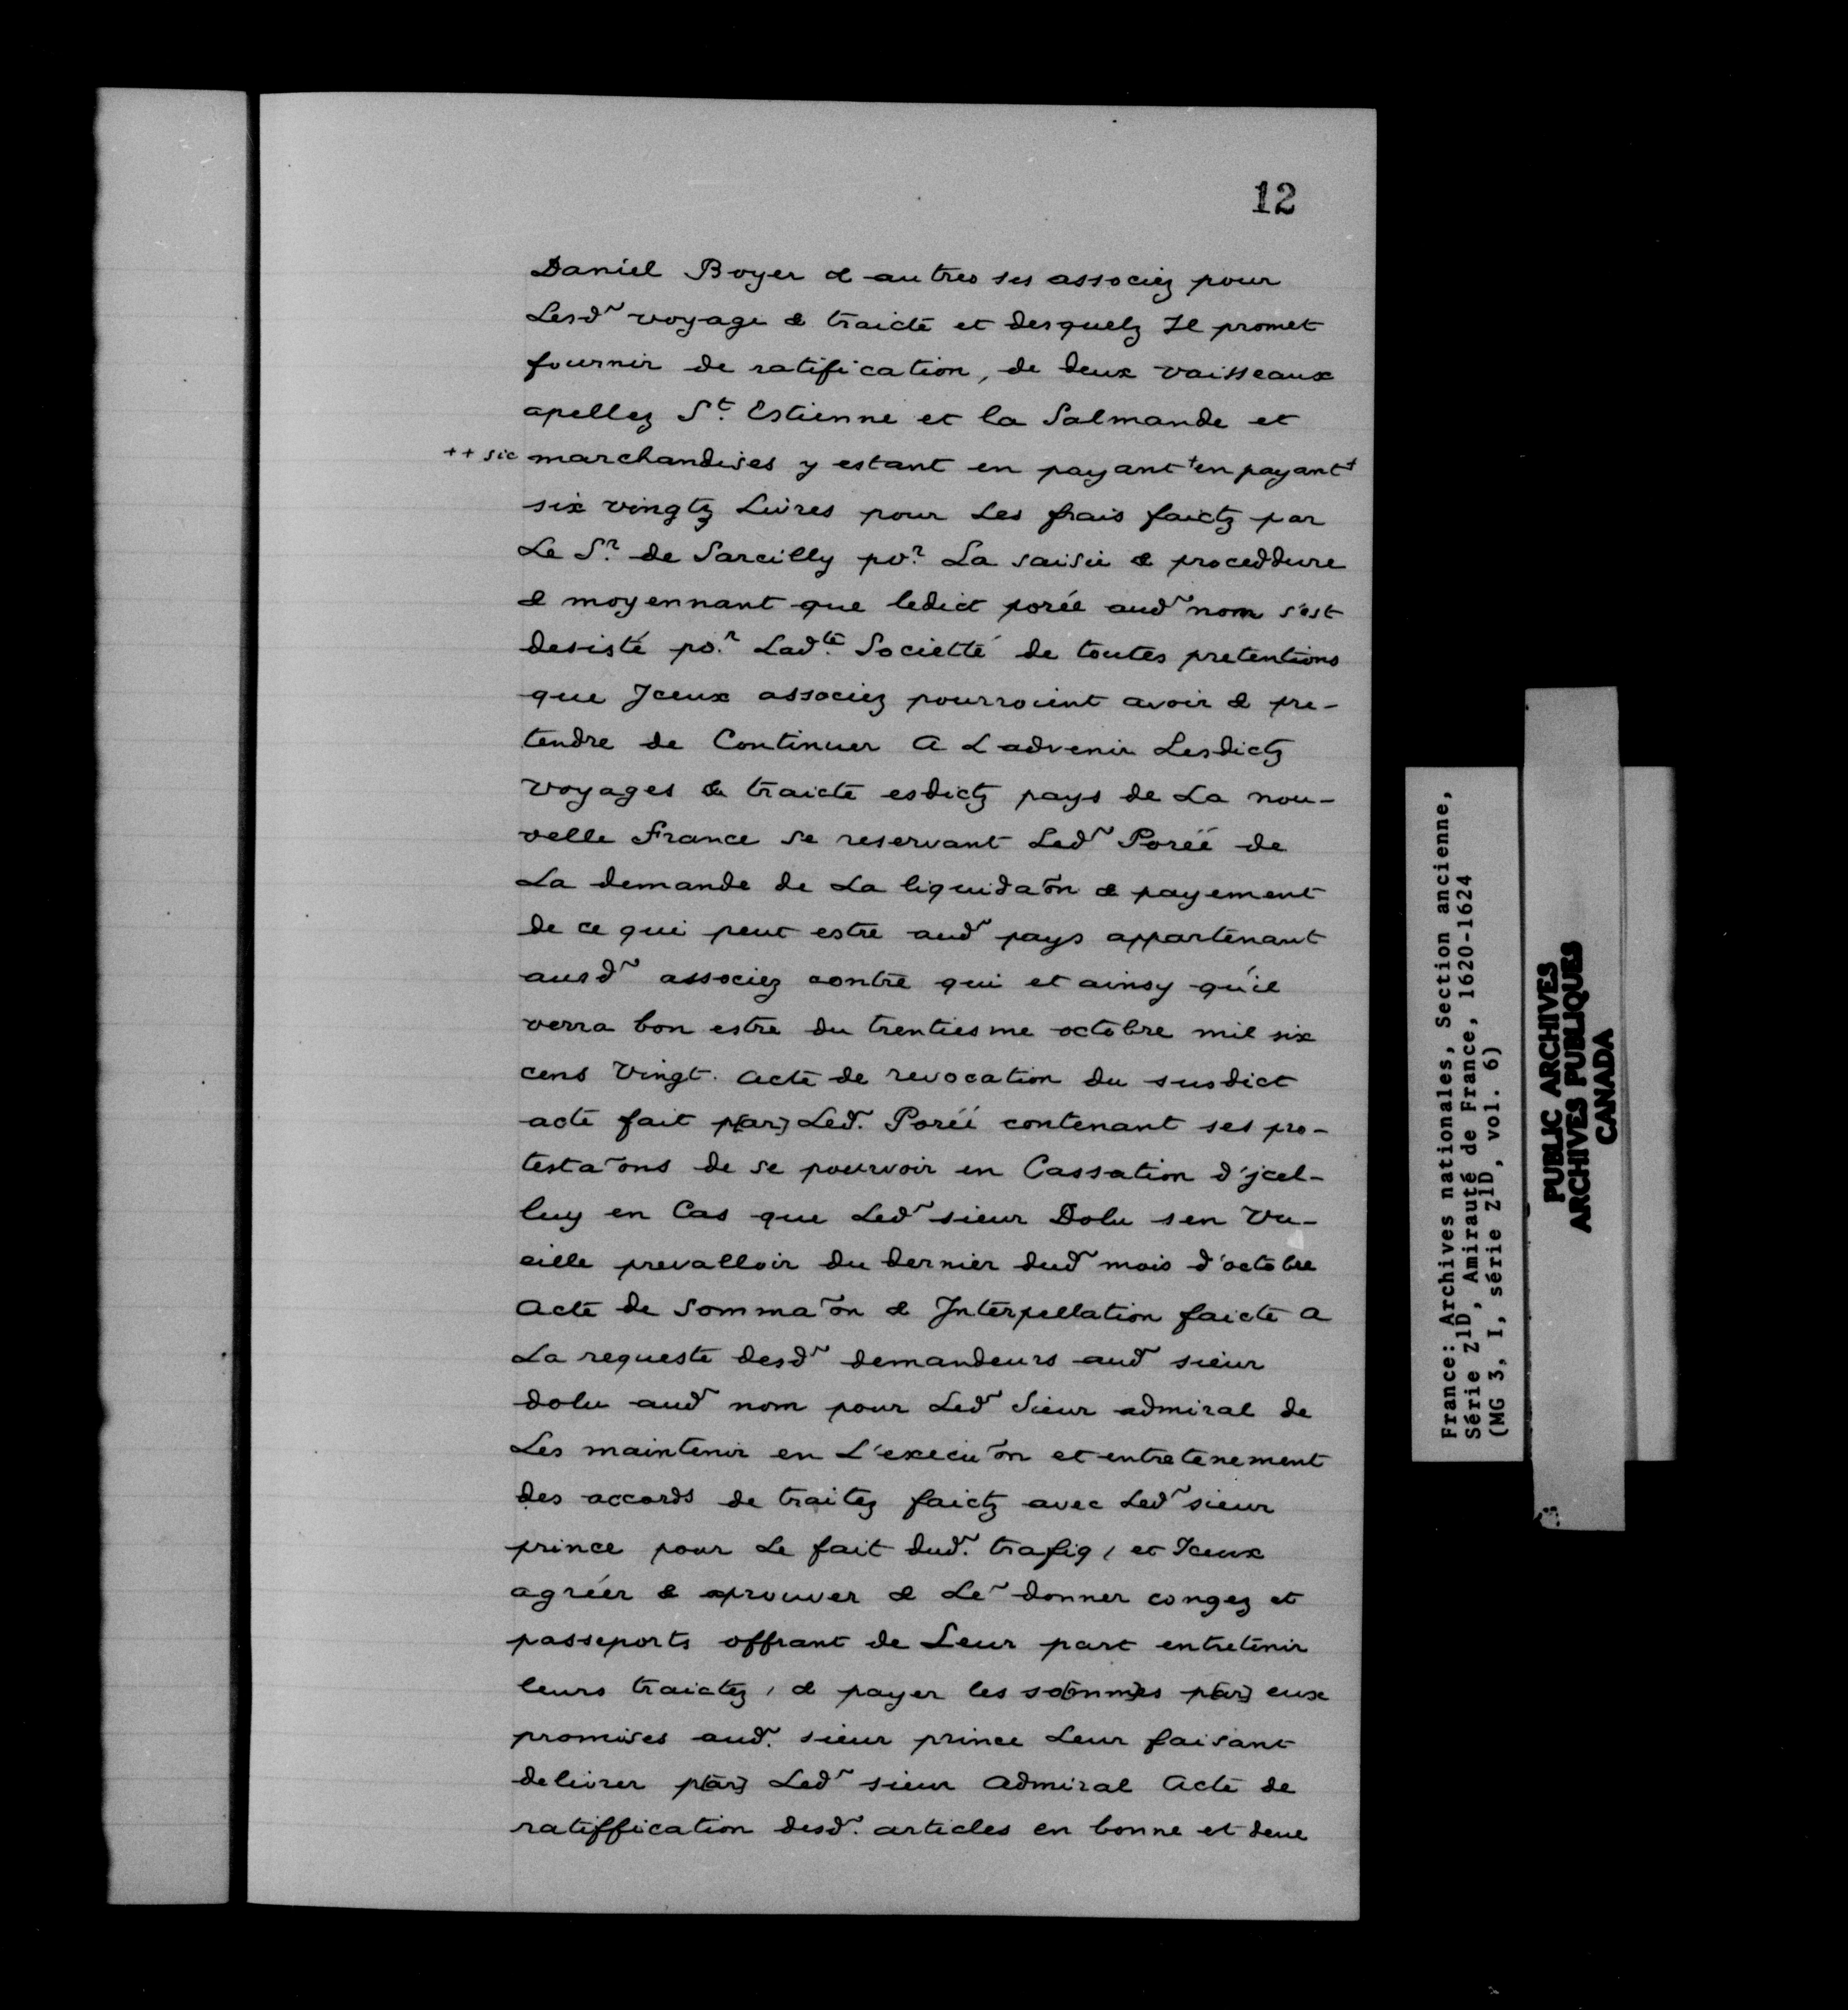 12
Daniel Boyer & autres ses associez pour
Lesd~ voyage & traicte et desquelz Il promet
fournir de ratification, de deux vaisseaux
apellez St. Estienne et la Salmande et
++ sic marchandises y estant en payant +en payant+
six vingtz Livres pour Les frais faictz par
Le Sr. de Sarcilly por. La saisie & proceddure
& moyennant que ledict porée aud~ nom s'est
desisté por. Ladte. Societté de toutes pretentions
que Jceux associez pourroient avoir & pre-
tendre de Continuer a Ladvenir Lesdictz
voyages & traicte esdictz pays de La nou-
velle France se reservant Led~ Porée de
La demande de La liquidaōn & payement
de ce qui peut estre aud~ pays appartenant
ausd~ associez contre qui et ainsy qu'il
verra bon estre du trentiesme octobre mil six
cens Vingt. acte de revocation du susdict
acte fait p[ar] Led. Porée contenant ses pro-
testa~ons de se pourvoir en Cassation d'jcel-
luy en Cas que Led~ sieur Dolu s en Vu-
eille prevalloir du dernier dud~ mois d'octobre
Acte de Somma~on & Interpellation faicte a
La requeste desd~ demandeurs aud~ sieur
dolu aud~ nom pour Led~ Sieur admiral de
Les maintenir en L'execu~on et entretenement
des accords de traitez faictz avec Led~ sieur
prince pour Le fait dud~. trafiq, et Iceux
agréer & aprouver & Le~ donner congez et
passeports offrant de Leur part entretenir
leurs traictez, & payer les so[mm]es p[ar] eux
promises aud~. sieur prince Leur faisant
delivrer p[ar] Led~ sieur Admiral Acte de
ratiffication desd~. articles en bonne et deue
France: Archives nationales, Section ancienne,
Série Z1D, Amirauté de France, 1620-1624
(MG 3, I, série Z1D, vol. 6)
PUBLIC ARCHIVES
ARCHIVES PUBLIQUES
CANADA